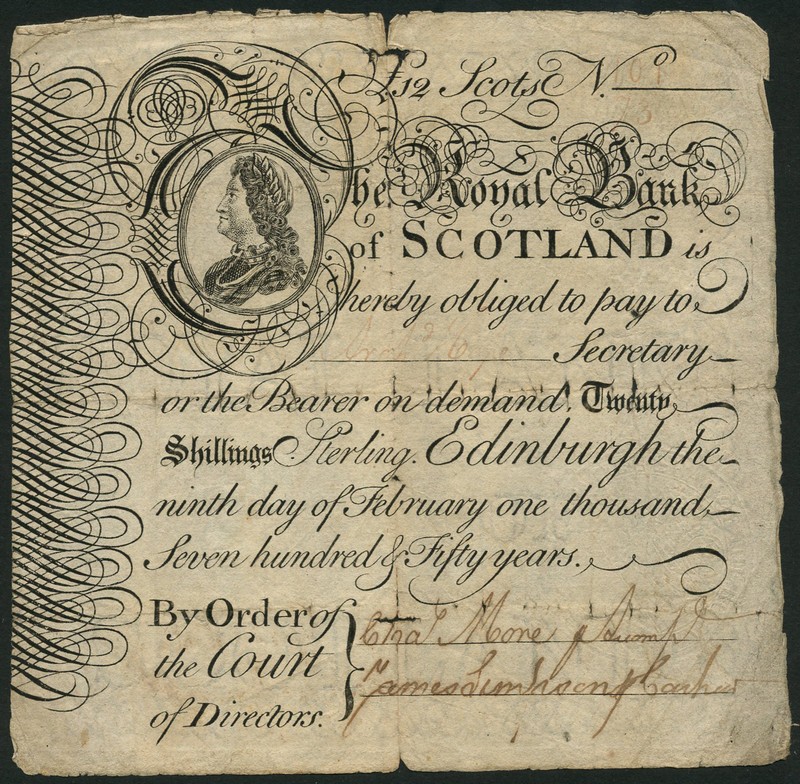 £12 Scots No.
The Royal Bank
of SCOTLAND is
hereby obliged to pay to
Secretary
or the Bearer on demand. Twenty
Shillings Sterling. Edinburgh the
ninth day of February one thousand
Seven hundred & Fifty years.
By Order of
the Court
of Directors.
Chas More
James Simson